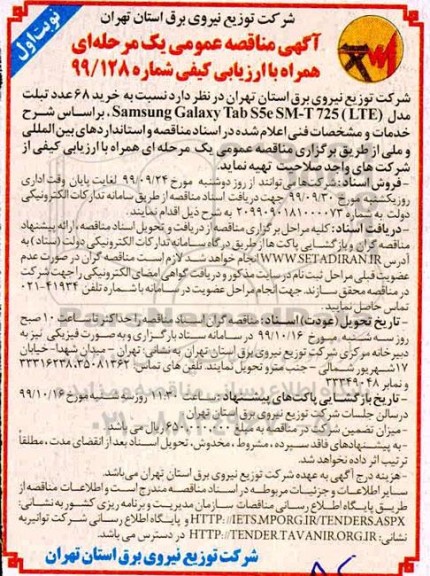 نوبت اول
شرکت توزیع نیروی برق استان تهران
آگهی مناقصه عمومی یک مرحله‌ای
همراه با ارزیابی کیفی شماره ۹۹/۱۲۸
شرکت توزیع نیروی برق استان تهران در نظر دارد نسبت به خرید ۶۸ عدد تبلت
مدل Samsung Galaxy Tab S5e SM-T 725 (LTE)، براساس شرح
خدمات و مشخصات فنی اعلام شده در اسناد مناقصه و استانداردهای بین المللی
و ملی از طریق برگزاری مناقصه عمومی یک مرحله ای همراه با ارزیابی کیفی از
شرکت های واجد صلاحیت تهیه نماید.
-فروش اسناد: شرکت‌ها می‌توانند از روز دوشنبه مورخ ۹۹/۰۹/۲۴ لغایت پایان وقت اداری
روز یکشنبه مورخ ۹۹/۰۹/۳۰ جهت دریافت اسناد مناقصه از طریق سامانه تدارکات الکترونیکی
دولت به شماره ۲۰۹۹۰۹۰۱۸۱۰۰۰۰۷۳ به شرح ذیل اقدام نمایند.
-دریافت اسناد: کلیه مراحل برگزاری مناقصه از دریافت و تحویل اسناد مناقصه، ارائه پیشنهاد
مناقصه گران و بازگشایی پاکت ها از طریق درگاه سامانه تدارکات الکترونیکی دولت (ستاد) به
آدرس WWW.SETADIRAN.IR انجام خواهد شد. لازم است مناقصه گران در صورت عدم
عضویت قبلی مراحل ثبت نام در سایت مذکور و دریافت گواهی امضای الکترونیکی را جهت شرکت
در مناقصه محقق سازند. جهت انجام مراحل عضویت در سامانه با شماره تلفن ۴۱۹۳۴-۰۲۱
تماس حاصل نمایید.
- تاریخ تحویل (عودت) اسناد: مناقصه گران اسناد مناقصه را حداکثر تا ساعت ۱۰ صبح
روز سه شنبه مورخ ۹۹/۱۰/۱۶ در سامانه ستاد بارگزاری و به صورت فیزیکی نیز به
دبیرخانه مرکزی شرکت توزیع نیروی برق استان تهران به نشانی: تهران - میدان شهدا- خیابان
۱۷شهریور شمالی - جنب مترو تحویل نمایند. تلفن های تماس: ۳۵۰۸۱۳۶۲، ۳۳۳۱۶۲۳۸
و نمابر ۳۳۳۴۹۰۴۸
- تاریخ بازگشایی پاکت‌های پیشنهاد: ساعت ۱۱:۳۰ روز سه شنبه مورخ ۹۹/۱۰/۱۶
در سالن جلسات شرکت توزیع نیروی برق استان تهران
- میزان تضمین شرکت در مناقصه به مبلغ ریال می باشد.
-به پیشنهادهای فاقد سپرده، مشروط، مخدوش، تحویل اسناد بعد از انقضای مدت، مطلقا
ترتیب اثر داده نخواهد شد.
-هزینه درج آگهی به عهده شرکت توزیع نیروی برق استان تهران می‌باشد.
سایر اطلاعات و جزئیات مربوطه در اسناد مناقصه مندرج است و اطلاعات مناقصه از
طریق پایگاه اطلاع رسانی مناقصات سازمان مدیریت و برنامه ریزی کشور به نشانی:
HTTP://IETS.MPORG.IR/TENDERS.ASPX و پایگاه اطلاع رسانی شرکت توانیر به
نشانی: HTTP://TENDER.TAVANIR.ORG.IR در دسترس می باشد.
شرکت توزیع نیروی برق استان تهران